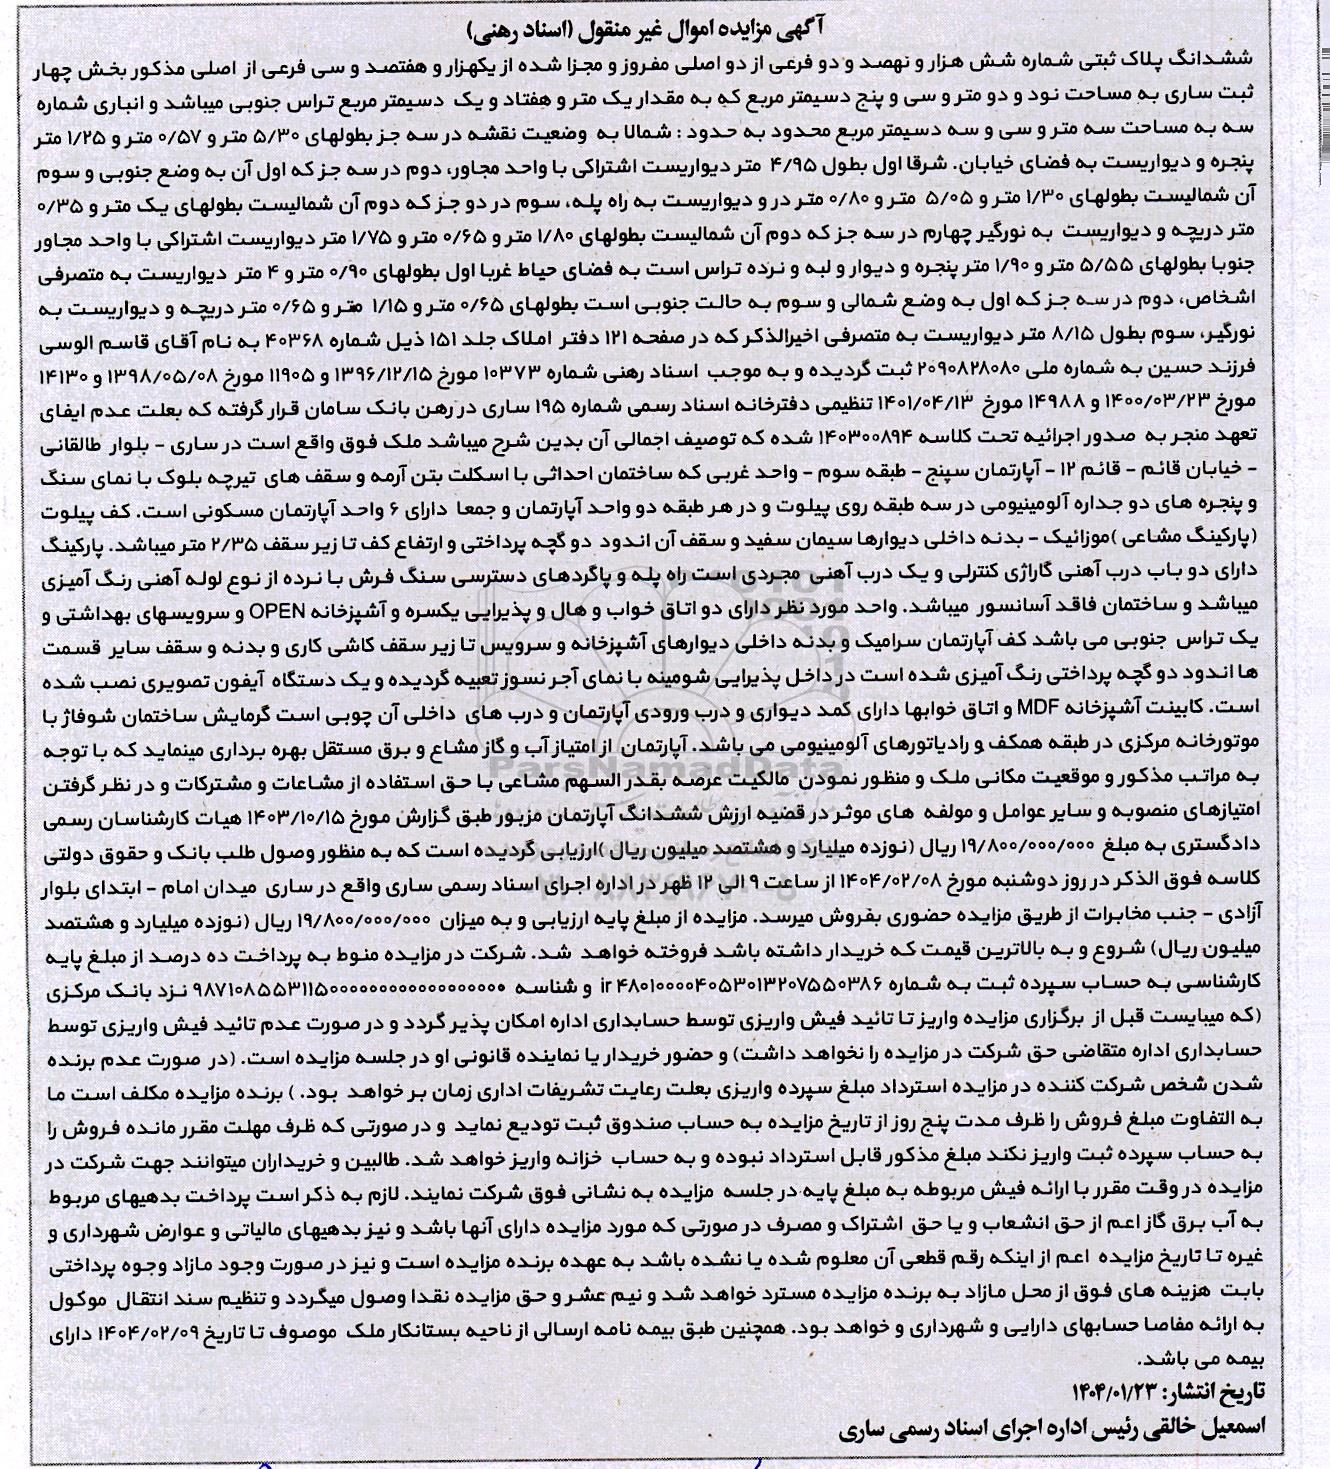 آگهی مزایده اموال غیر منقول (اسناد رهنی)
ششدانگ پلاک ثبتی شماره شش هزار و نهصد و دو فرعی از دو اصلی مفروز و مجزا شده از یکهزار و هفتصد و سی فرعی از اصلی مذکور بخش چهار
ثبت ساری به مساحت نود و دو متر و سی و پنج دسیمتر مربع که به مقدار یک متر و هفتاد و یک دسیمتر مربع تراس جنوبی میباشد و انباری شماره
سه به مساحت سه متر و سی و سه دسیمتر مربع محدود به حدود : شمالا به وضعیت نقشه در سه جز بطولهای ۵/۳۰ متر و ۰/۵۷ متر و ۱/۲۵ متر
پنجره و دیواریست به فضای خیابان. شرقا اول بطول ۴/۹۵ متر دیواریست اشتراکی با واحد مجاور، دوم در سه جز که اول آن به وضع جنوبی و سوم
آن شمالیست بطولهای ۱/۳۰ متر و ۵/۰۵ متر و ۰/۸۰ متر در و دیواریست به راه پله، سوم در دو جز که دوم آن شمالیست بطولهای یک متر و ۰/۳۵
متر دریچه و دیواریست به نورگیر چهارم در سه جز که دوم آن شمالیست بطولهای ۱/۸۰ متر و ۰/۶۵ متر و ۱/۷۵ متر دیواریست اشتراکی با واحد مجاور
جنوبا بطولهای ۵/۵۵ متر و ۱/۹۰ متر پنجره و دیوار و لبه و نرده تراس است به فضای حیاط غربا اول بطولهای ۰/۹۰ متر و ۴ متر دیواریست به متصرفی
اشخاص، دوم در سه جز که اول به وضع شمالی و سوم به حالت جنوبی است بطولهای ۰/۶۵ متر و ۱/۱۵ متر و ۰/۶۵ متر دریچه و دیواریست به
نورگیر، سوم بطول ۸/۱۵ متر دیواریست به متصرفی اخیرالذکر که در صفحه ۱۲۱ دفتر املاک جلد ۱۵۱ ذیل شماره ۴۰۳۶۸ به نام آقای قاسم الوسی
فرزند حسین به شماره ملی ۲۰۹۰۸۲۸۰۸۰ ثبت گردیده و به موجب اسناد رهنی شماره ۱۰۳۷۳ مورخ ۱۳۹۶/۱۲/۱۵ و ۱۱۹۰۵ مورخ ۱۳۹۸/۰۵/۰۸ و ۱۴۱۳۰
مورخ ۱۴۰۰/۰۳/۲۳ و ۱۴۹۸۸ مورخ ۱۴۰۱/۰۴/۱۳ تنظیمی دفترخانه اسناد رسمی شماره ۱۹۵ ساری در رهن بانک سامان قرار گرفته که بعلت عدم ایفای
تعهد منجر به صدور اجرائیه تحت کلاسه ۱۴۰۳۰۰۸۹۴ شده که توصیف اجمالی آن بدین شرح میباشد ملک فوق واقع است در ساری - بلوار طالقانی
- خیابان قائم - قائم ۱۲ - آپارتمان سپنج - طبقه سوم - واحد غربی که ساختمان احداثی با اسکلت بتن آرمه و سقف های تیرچه بلوک با نمای سنگ
و پنجره های دو جداره آلومینیومی در سه طبقه روی پیلوت و در هر طبقه دو واحد آپارتمان و جمعا دارای ۶ واحد آپارتمان مسکونی است. کف پیلوت
(پارکینگ مشاعی )موزائیک - بدنه داخلی دیوارها سیمان سفید و سقف آن اندود دو گچه پرداختی و ارتفاع کف تا زیر سقف ۲/۳۵ متر میباشد. پارکینگ
دارای دو باب درب آهنی گاراژی کنترلی و یک درب آهنی مجردی است راه پله و پاگردهای دسترسی سنگ فرش با نرده از نوع لوله آهنی رنگ آمیزی
میباشد و ساختمان فاقد آسانسور میباشد. واحد مورد نظر دارای دو اتاق خواب و هال و پذیرایی یکسره و آشپزخانه OPEN و سرویسهای بهداشتی و
یک تراس جنوبی می باشد کف آپارتمان سرامیک و بدنه داخلی دیوارهای آشپزخانه و سرویس تا زیر سقف کاشی کاری و بدنه و سقف سایر قسمت
ها اندود دو گچه پرداختی رنگ آمیزی شده است در داخل پذیرایی شومینه با نمای آجر نسوز تعبیه گردیده و یک دستگاه آیفون تصویری نصب شده
است. کابینت آشپزخانه MDF و اتاق خوابها دارای کمد دیواری و درب ورودی آپارتمان و درب های داخلی آن چوبی است گرمایش ساختمان شوفاژ با
موتورخانه مرکزی در طبقه همکف و رادیاتورهای آلومینیومی می باشد. آپارتمان از امتیاز آب و گاز مشاع و برق مستقل بهره برداری مینماید که با توجه
به مراتب مذکور و موقعیت مکانی ملک و منظور نمودن مالکیت عرصه بقدر السهم مشاعی با حق استفاده از مشاعات و مشترکات و در نظر گرفتن
امتیازهای منصوبه و سایر عوامل و مولفه های موثر در قضیه ارزش ششدانگ آپارتمان مزبور طبق گزارش مورخ ۱۴۰۳/۱۰/۱۵ هیات کارشناسان رسمی
دادگستری به مبلغ ۱۹/۸۰۰/۰۰۰/۰۰۰ ریال (نوزده میلیارد و هشتصد میلیون ریال )ارزیابی گردیده است که به منظور وصول طلب بانک و حقوق دولتی
کلاسه فوق الذکر در روز دوشنبه مورخ ۱۴۰۴/۰۲/۰۸ از ساعت ۹ الی ۱۲ ظهر در اداره اجرای اسناد رسمی ساری واقع در ساری میدان امام - ابتدای بلوار
آزادی - جنب مخابرات از طریق مزایده حضوری بفروش میرسد. مزایده از مبلغ پایه ارزیابی و به میزان ۱۹/۸۰۰/۰۰۰/۰۰۰ ریال (نوزده میلیارد و هشتصد
میلیون ریال) شروع و به بالاترین قیمت که خریدار داشته باشد فروخته خواهد شد. شرکت در مزایده منوط به پرداخت ده درصد از مبلغ پایه
کارشناسی به حساب سپرده ثبت به شماره ir ۴۸۰۱۰۰۰۰۴۰۵۳۰۱۳۲۰۷۵۵۰۳۸۶ و شناسه نزد بانک مرکزی
(که میبایست قبل از برگزاری مزایده واریز تا تائید فیش واریزی توسط حسابداری اداره امکان پذیر گردد و در صورت عدم تائید فیش واریزی توسط
حسابداری اداره متقاضی حق شرکت در مزایده را نخواهد داشت) و حضور خریدار یا نماینده قانونی او در جلسه مزایده است. (در صورت عدم برنده
شدن شخص شرکت کننده در مزایده استرداد مبلغ سپرده واریزی بعلت رعایت تشریفات اداری زمان بر خواهد بود. ) برنده مزایده مکلف است ما
به التفاوت مبلغ فروش را ظرف مدت پنج روز از تاریخ مزایده به حساب صندوق ثبت تودیع نماید و در صورتی که ظرف مهلت مقرر مانده فروش را
به حساب سپرده ثبت واریز نکند مبلغ مذکور قابل استرداد نبوده و به حساب خزانه واریز خواهد شد. طالبین و خریداران میتوانند جهت شرکت در
مزایده در وقت مقرر با ارائه فیش مربوطه به مبلغ پایه در جلسه مزایده به نشانی فوق شرکت نمایند. لازم به ذکر است پرداخت بدهیهای مربوط
به آب برق گاز اعم از حق انشعاب و یا حق اشتراک و مصرف در صورتی که مورد مزایده دارای آنها باشد و نیز بدهیهای مالیاتی و عوارض شهرداری و
غیره تا تاریخ مزایده اعم از اینکه رقم قطعی آن معلوم شده یا نشده باشد به عهده برنده مزایده است و نیز در صورت وجود مازاد وجوه پرداختی
بابت هزینه های فوق از محل مازاد به برنده مزایده مسترد خواهد شد و نیم عشر و حق مزایده نقدا وصول میگردد و تنظیم سند انتقال موکول
به ارائه مفاصا حسابهای دارایی و شهرداری و خواهد بود. همچنین طبق بیمه نامه ارسالی از ناحیه بستانکار ملک موصوف تا تاریخ ۱۴۰۴/۰۲/۰۹ دارای
بیمه می باشد.
تاریخ انتشار: ۱۴۰۴/۰۱/۲۳
اسمعیل خالقی رئیس اداره اجرای اسناد رسمی ساری
ParsNamadData